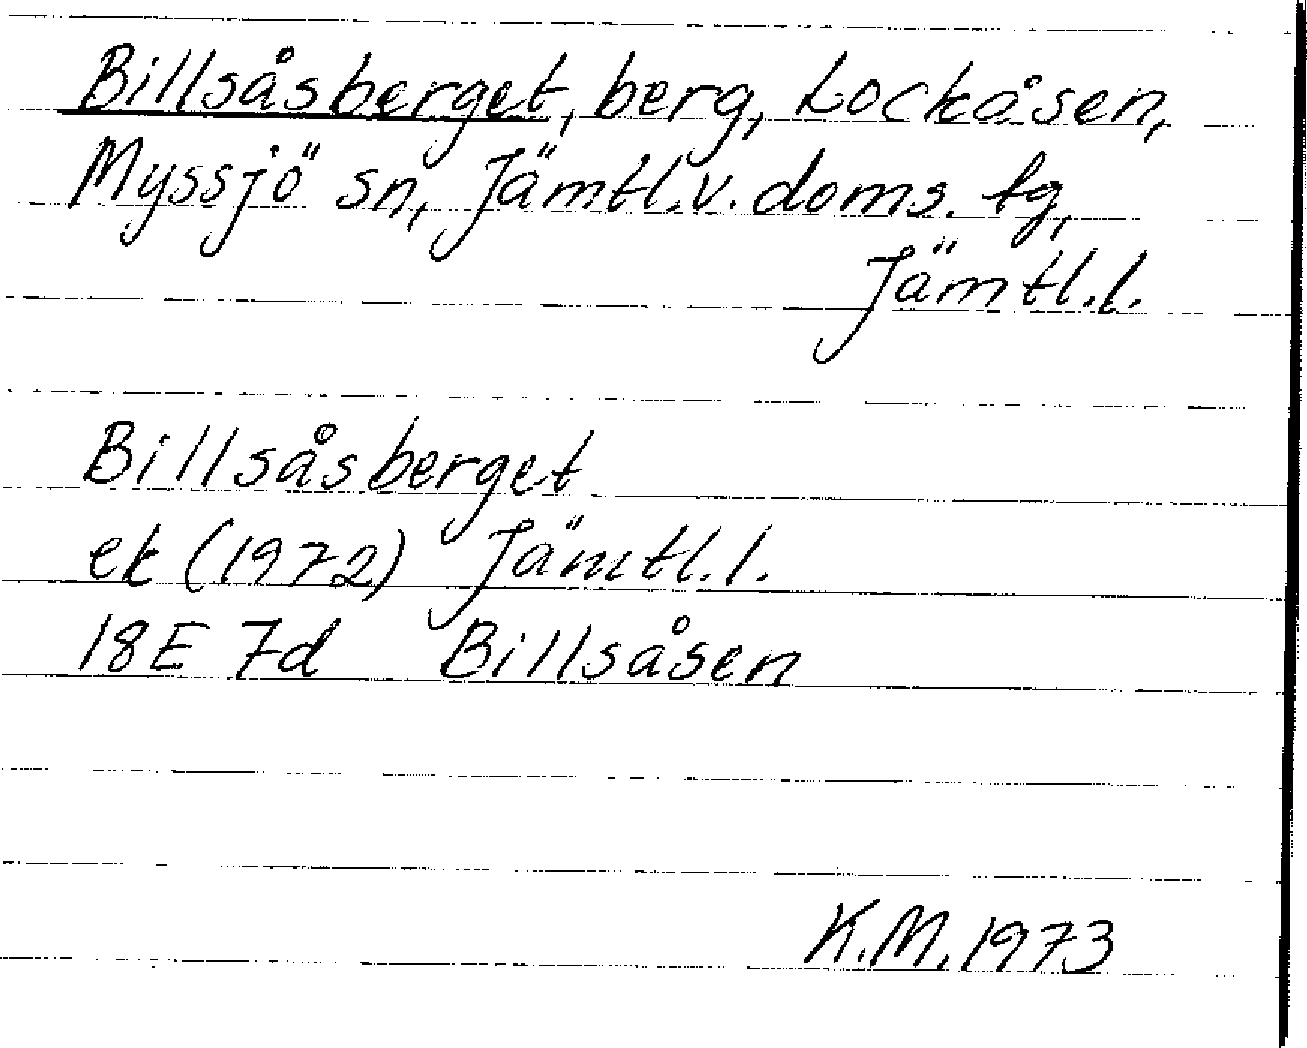 Billsåsberget, berg, Lockåsen,
Myssjö sn, Jämtl.v. doms. tg,
Jämtl.l.
Billsåsberget
ek (1972) Jämtl.l.
18E 7d Billsåsen
K.M. 1973